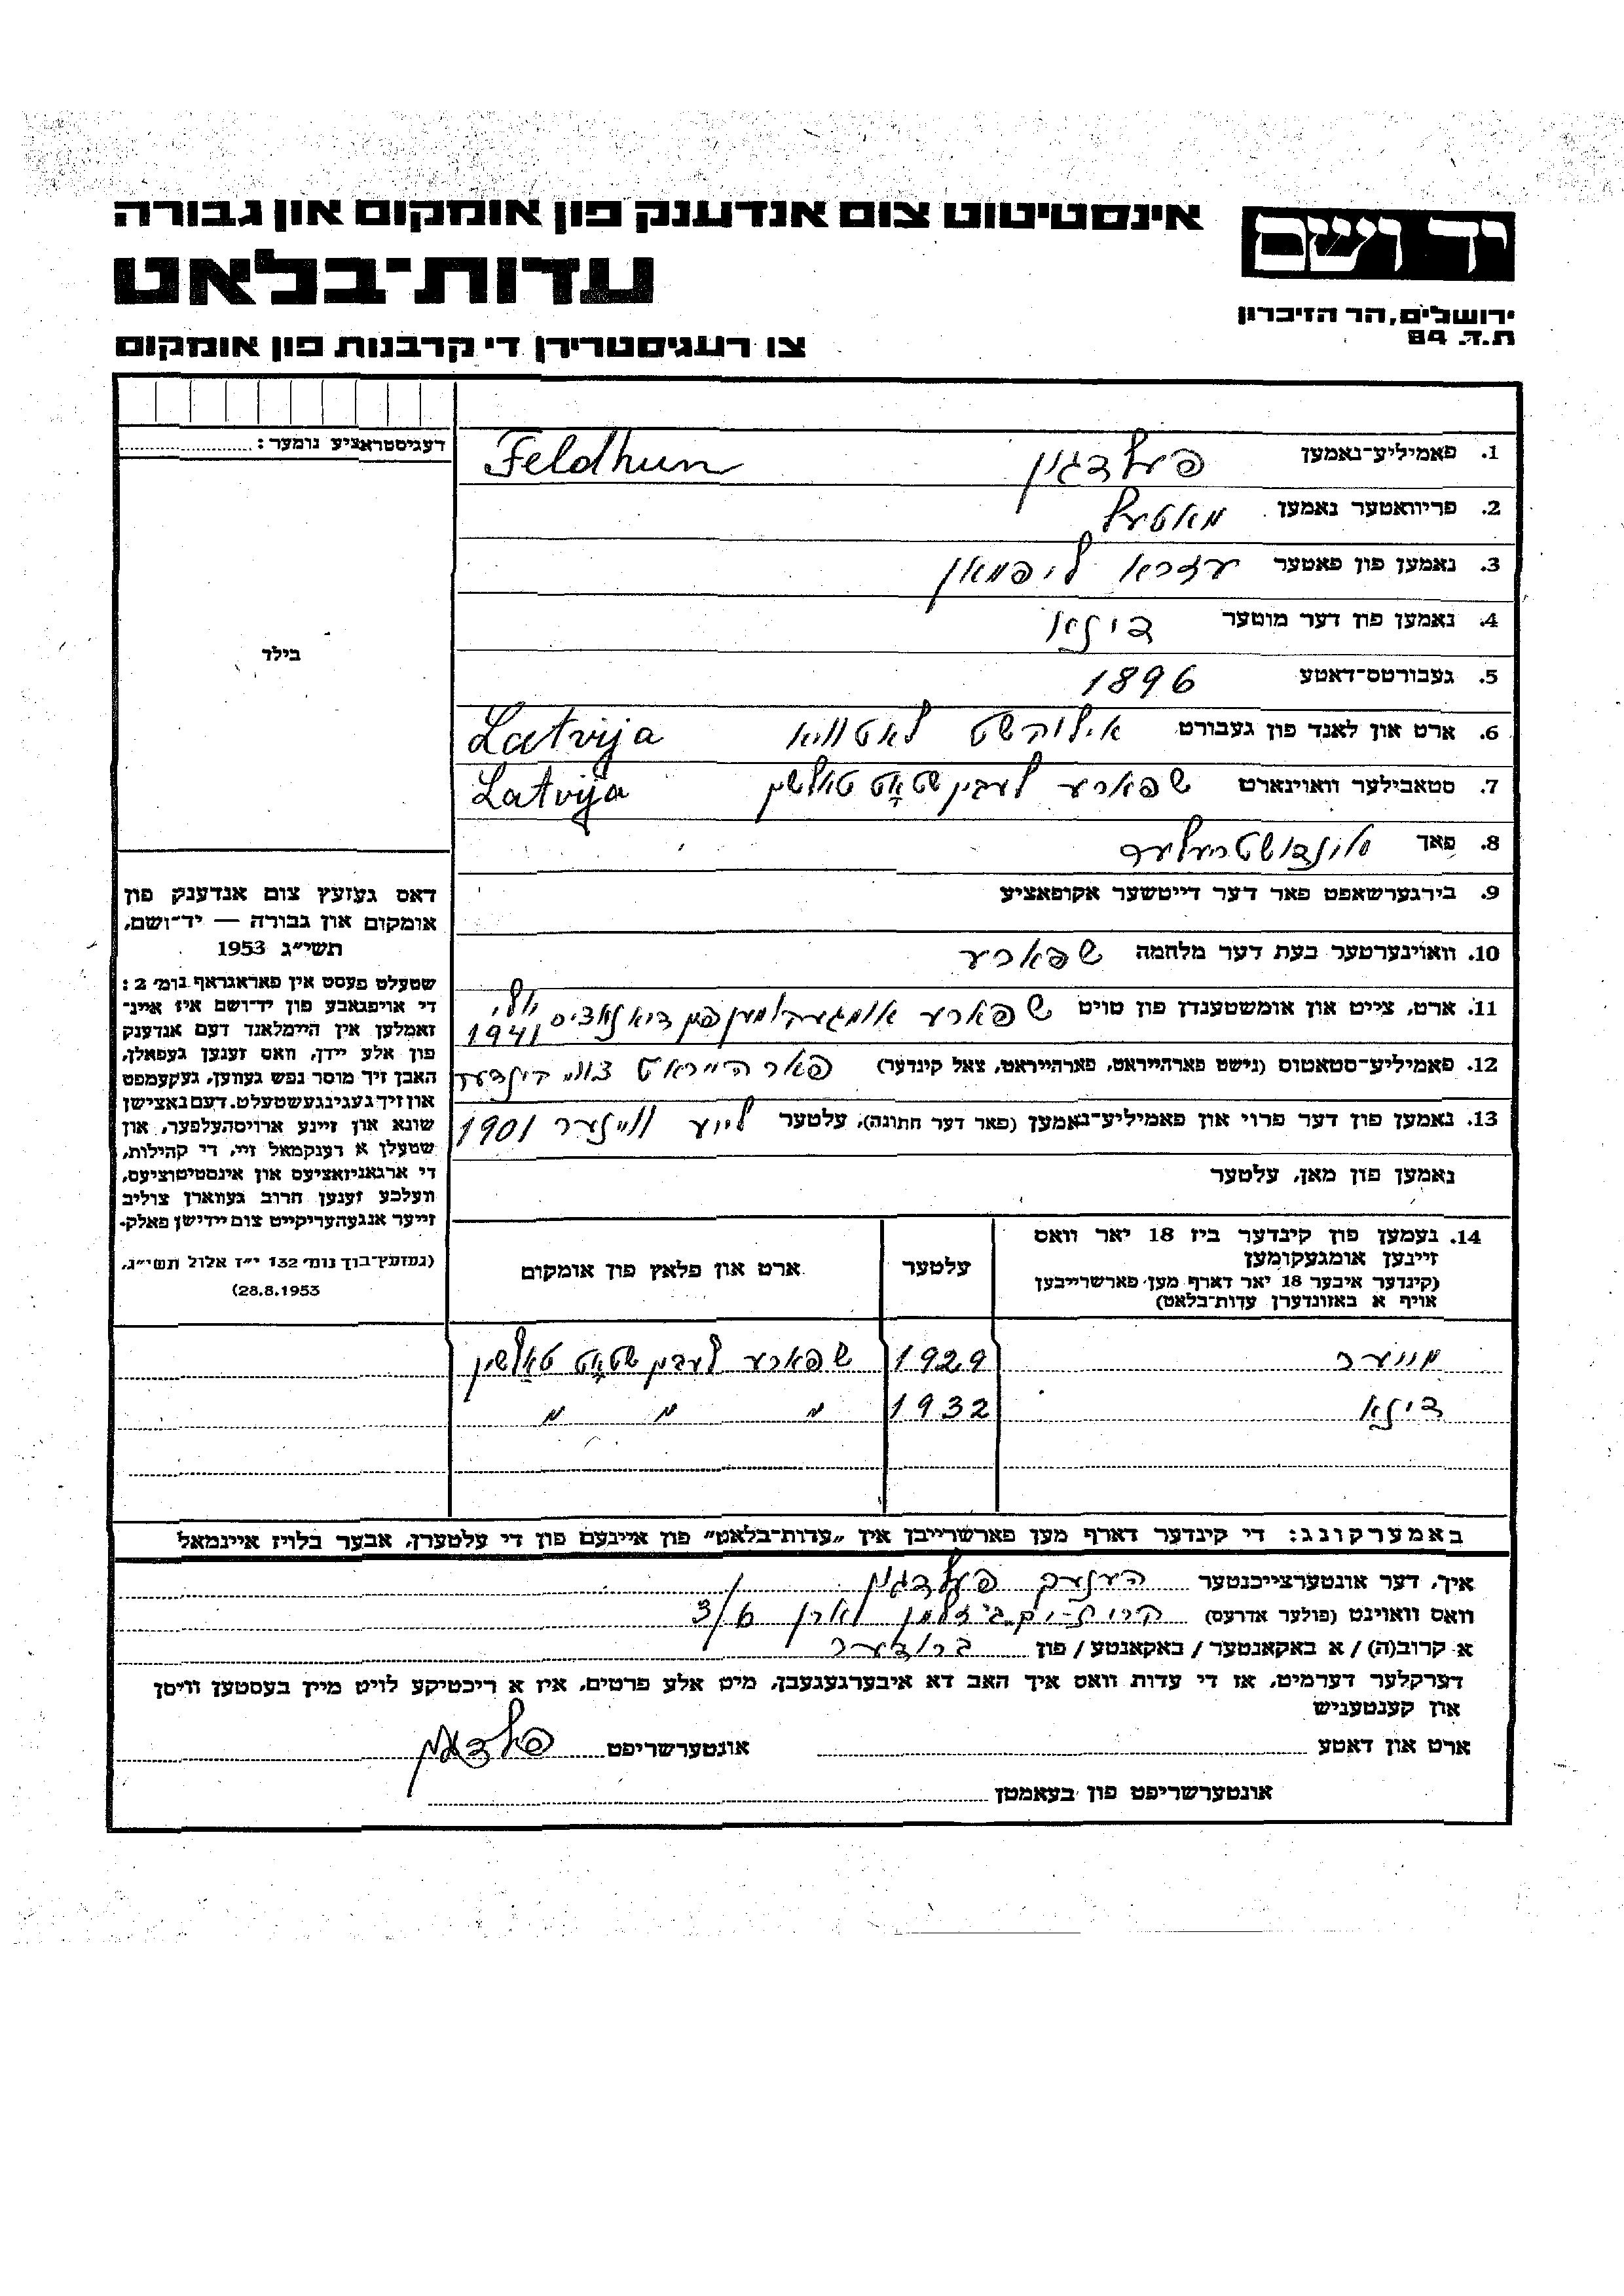 יד ושם
אינסטיטוט צום אנדענק פון אומקום און גבורה
עדות־בלאט
ירושלים, הר הזיכרון
ת.ד. 84
צו רעגיסטרירן די קרבנות פון אומקום
רעגיסטראציע נומער:
1. פאמיליע־נאמען פעלדגון Feldhun
2. פריוואטער נאמען מאטעל
3. נאמען פון פאטער עזרא ליפמאן
4. נאמען פון דער מוטער דינא
5. געבורטס־דאטע 1896
6. ארט און לאנד פון געבורט אילוקשט לאטוויא Latvija
7. סטאבילער וואוינארט שפארע לעבן שטאָט טאלשין Latvija
8. פאך
9. בירגערשאפט פאר דער דייטשער אקופאציע
10. וואוינערטער בעת דער מלחמה שפארע
11. ארט, צייט און אומשטענדן פון טויט שפארע אומגעקומען פון די נאציס יולי 1941
12. פאמיליע־סטאטוס (נישט פארהייראט, פארהייראט, צאל קינדער) פארהייראט צוויי קינדער
13. נאמען פון דער פרוי און פאמיליע־נאמען (פאר דער חתונה), עלטער 1901
נאמען פון מאן, עלטער
בילד
דאס געזעץ צום אנדענק פון
אומקום און גבורה — יד־ושם,
תשי״ג 1953
שטעלט פעסט אין פאראגראף נומ׳ 2:
די אויפגאבע פון יד־ושם איז איינ־
זאמלען אין היימלאנד דעם אנדענק
פון אלע יידן, וואס זענען געפאלן,
האבן זיך מוסר נפש געווען, געקעמפט
און זיך געגינגעשטעלט. דעם נאצישן
שונא און זיינע ארויסהעלפער, און
שטעלן א דענקמאל זיי, די קהילות,
די ארגאניזאציעס און אינסטיטוציעס,
וועלכע זענען חרוב געווארן צוליב
זייער אנגעהעריקייט צום יידישן פאלק.
(געזעץ־בוך נומ׳ 132 י״ז אלול תשי״ג,
28.8.1953)
14. נעמען פון קינדער ביז 18 יאר וואס
זיינען אומגעקומען
(קינדער איבער 18 יאר דארף מען פארשרייבן
אויף א באזונדערן עדות־בלאט)
עלטער
ארט און פלאץ פון אומקום
1929 שפארע לעבן שטאָט טאלשין
דינא 1932 " " "
באמערקונג: די קינדער דארף מען פארשרייבן אין „עדות־בלאט” פון איינעם פון די עלטערן, אבער בלויז איינמאל
איך, דער אונטערצייכנטער הענעך פעלדגון
וואס וואוינט (פולער אדרעס) 3/6
א קרוב(ה) / א באקאנטער / באקאנטע / פון ברודער
דערקלער דערמיט, אז די עדות וואס איך האב דא איבערגעגעבן, מיט אלע פרטים, איז א ריכטיקע לויט מיין בעסטען וויסן
און קענטעניש
ארט און דאטע אונטערשריפט
אונטערשריפט פון בעאמטן